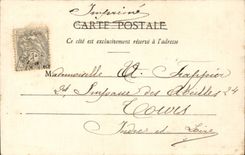 Imprimé
CARTE POSTALE
Ce côté est exclusivement réservé à l'adresse
Mademoiselle
Impasse des Abeilles 24
Tours
Indre et Loire